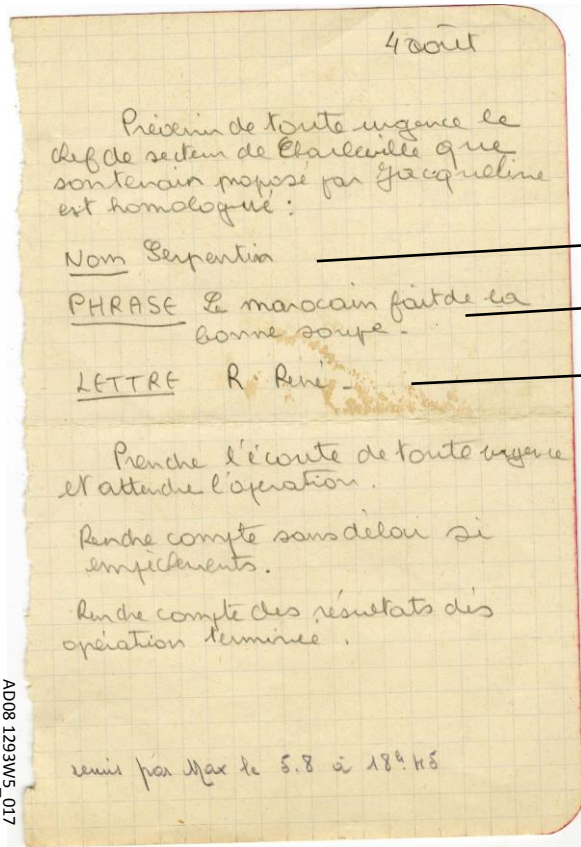 4 août
Prévenir de toute urgence le
chef de secteur de Charleville que
son terrain proposé par Jacqueline
est homologué :
Nom Serpentin
PHRASE Le marocain fait de la
bonne soupe.
LETTRE R René -
Prendre l'écoute de toute urgence
et attendre l'opération.
Rendre compte sans délai si
empêchements.
Rendre compte des résultats dès
opération terminée.
remis par Max le 5.8 à 18h45
AD08 1293W5_017